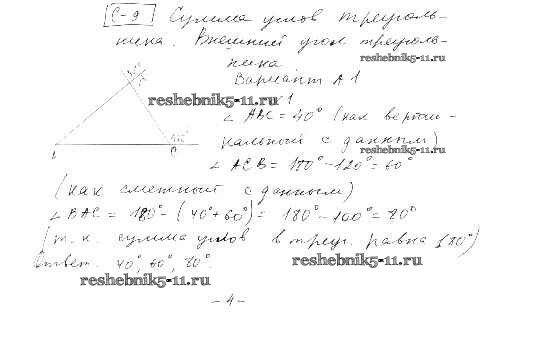 С-9 Сумма углов треуголь-
ника. Внешний угол треуголь-
ника
reshebnik5-11.ru
Вариант А1
reshebnik5-11.ru
1
∠ ABC = 40° (как верти-
кальный с данным)
reshebnik5-11.ru
∠ ACB = 180° - 120° = 60°
(как смежный с данным)
∠ BAC = 180° - (40° + 60°) = 180° - 100° = 80°
(т.к. сумма углов в треуг. равна 180°)
Ответ. 40°, 60°, 80°.
reshebnik5-11.ru
reshebnik5-11.ru
- 4 -